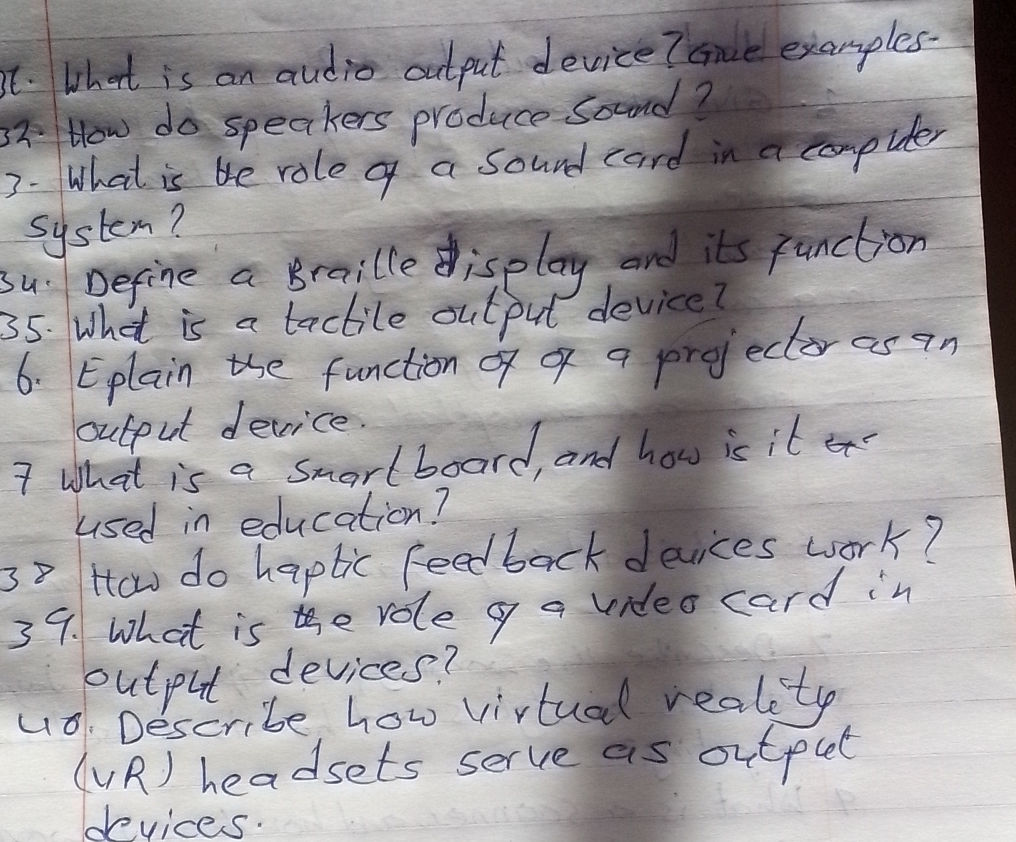 31. What is an audio output device? Give examples.
32. How do speakers produce sound?
3- What is the role of a sound card in a computer
system?
34. Define a Braille display and its function
35. What is a tactile output device?
6. Eplain the function of of a projector as an
output device.
7 What is a smartboard, and how is it
used in education?
38 How do haptic feedback devices work?
39. What is the role of a video card in
output devices?
40. Describe how virtual reality
(VR) headsets serve as output
devices.